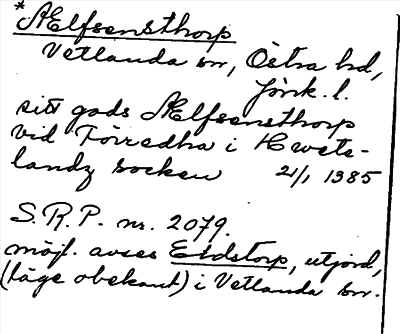 * Ælfsensthorp
Vetlanda sn, Östra hd,
Jönk. l.
sitt gods Ælfsensthorp
vid Förredha i Hwets-
landz socken 21/1 1385
S.R.P. nr. 2079.
möjl. avses Eldstorp, utjord,
(läge obekant) i Vetlanda sn.